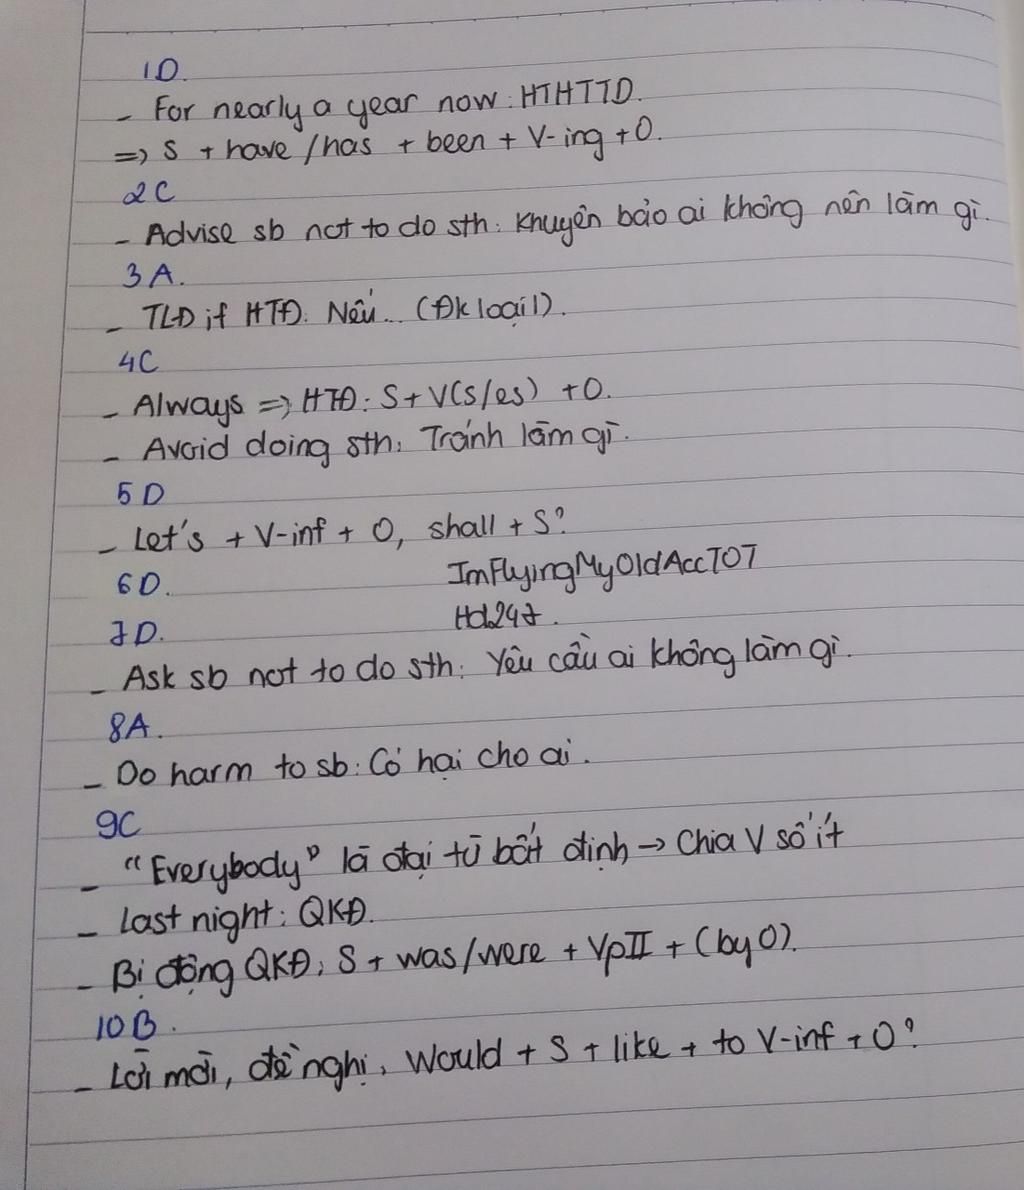 1D.
- For nearly a year now: HTHTTD.
=> S + have/has + been + V-ing + O.
2C
- Advise sb not to do sth: Khuyên bảo ai không nên làm gì.
3A.
- TLĐ if HTĐ: Nếu... (Đk loại 1).
4C
- Always => HTĐ: S + V(s/es) + O.
- Avoid doing sth: Tránh làm gì.
5D
- Let's + V-inf + O, shall + S?
6D.
ImFlyingMyOldAccTOT
7D.
Hd247.
- Ask sb not to do sth: Yêu cầu ai không làm gì.
8A.
- Do harm to sb: Có hại cho ai.
9C
- "Everybody" là đại từ bất định -> Chia V số ít
- Last night: QKĐ.
- Bị động QKĐ: S + was/were + VpII + (by O).
10B.
- Lời mời, đề nghị, Would + S + like + to V-inf + O?